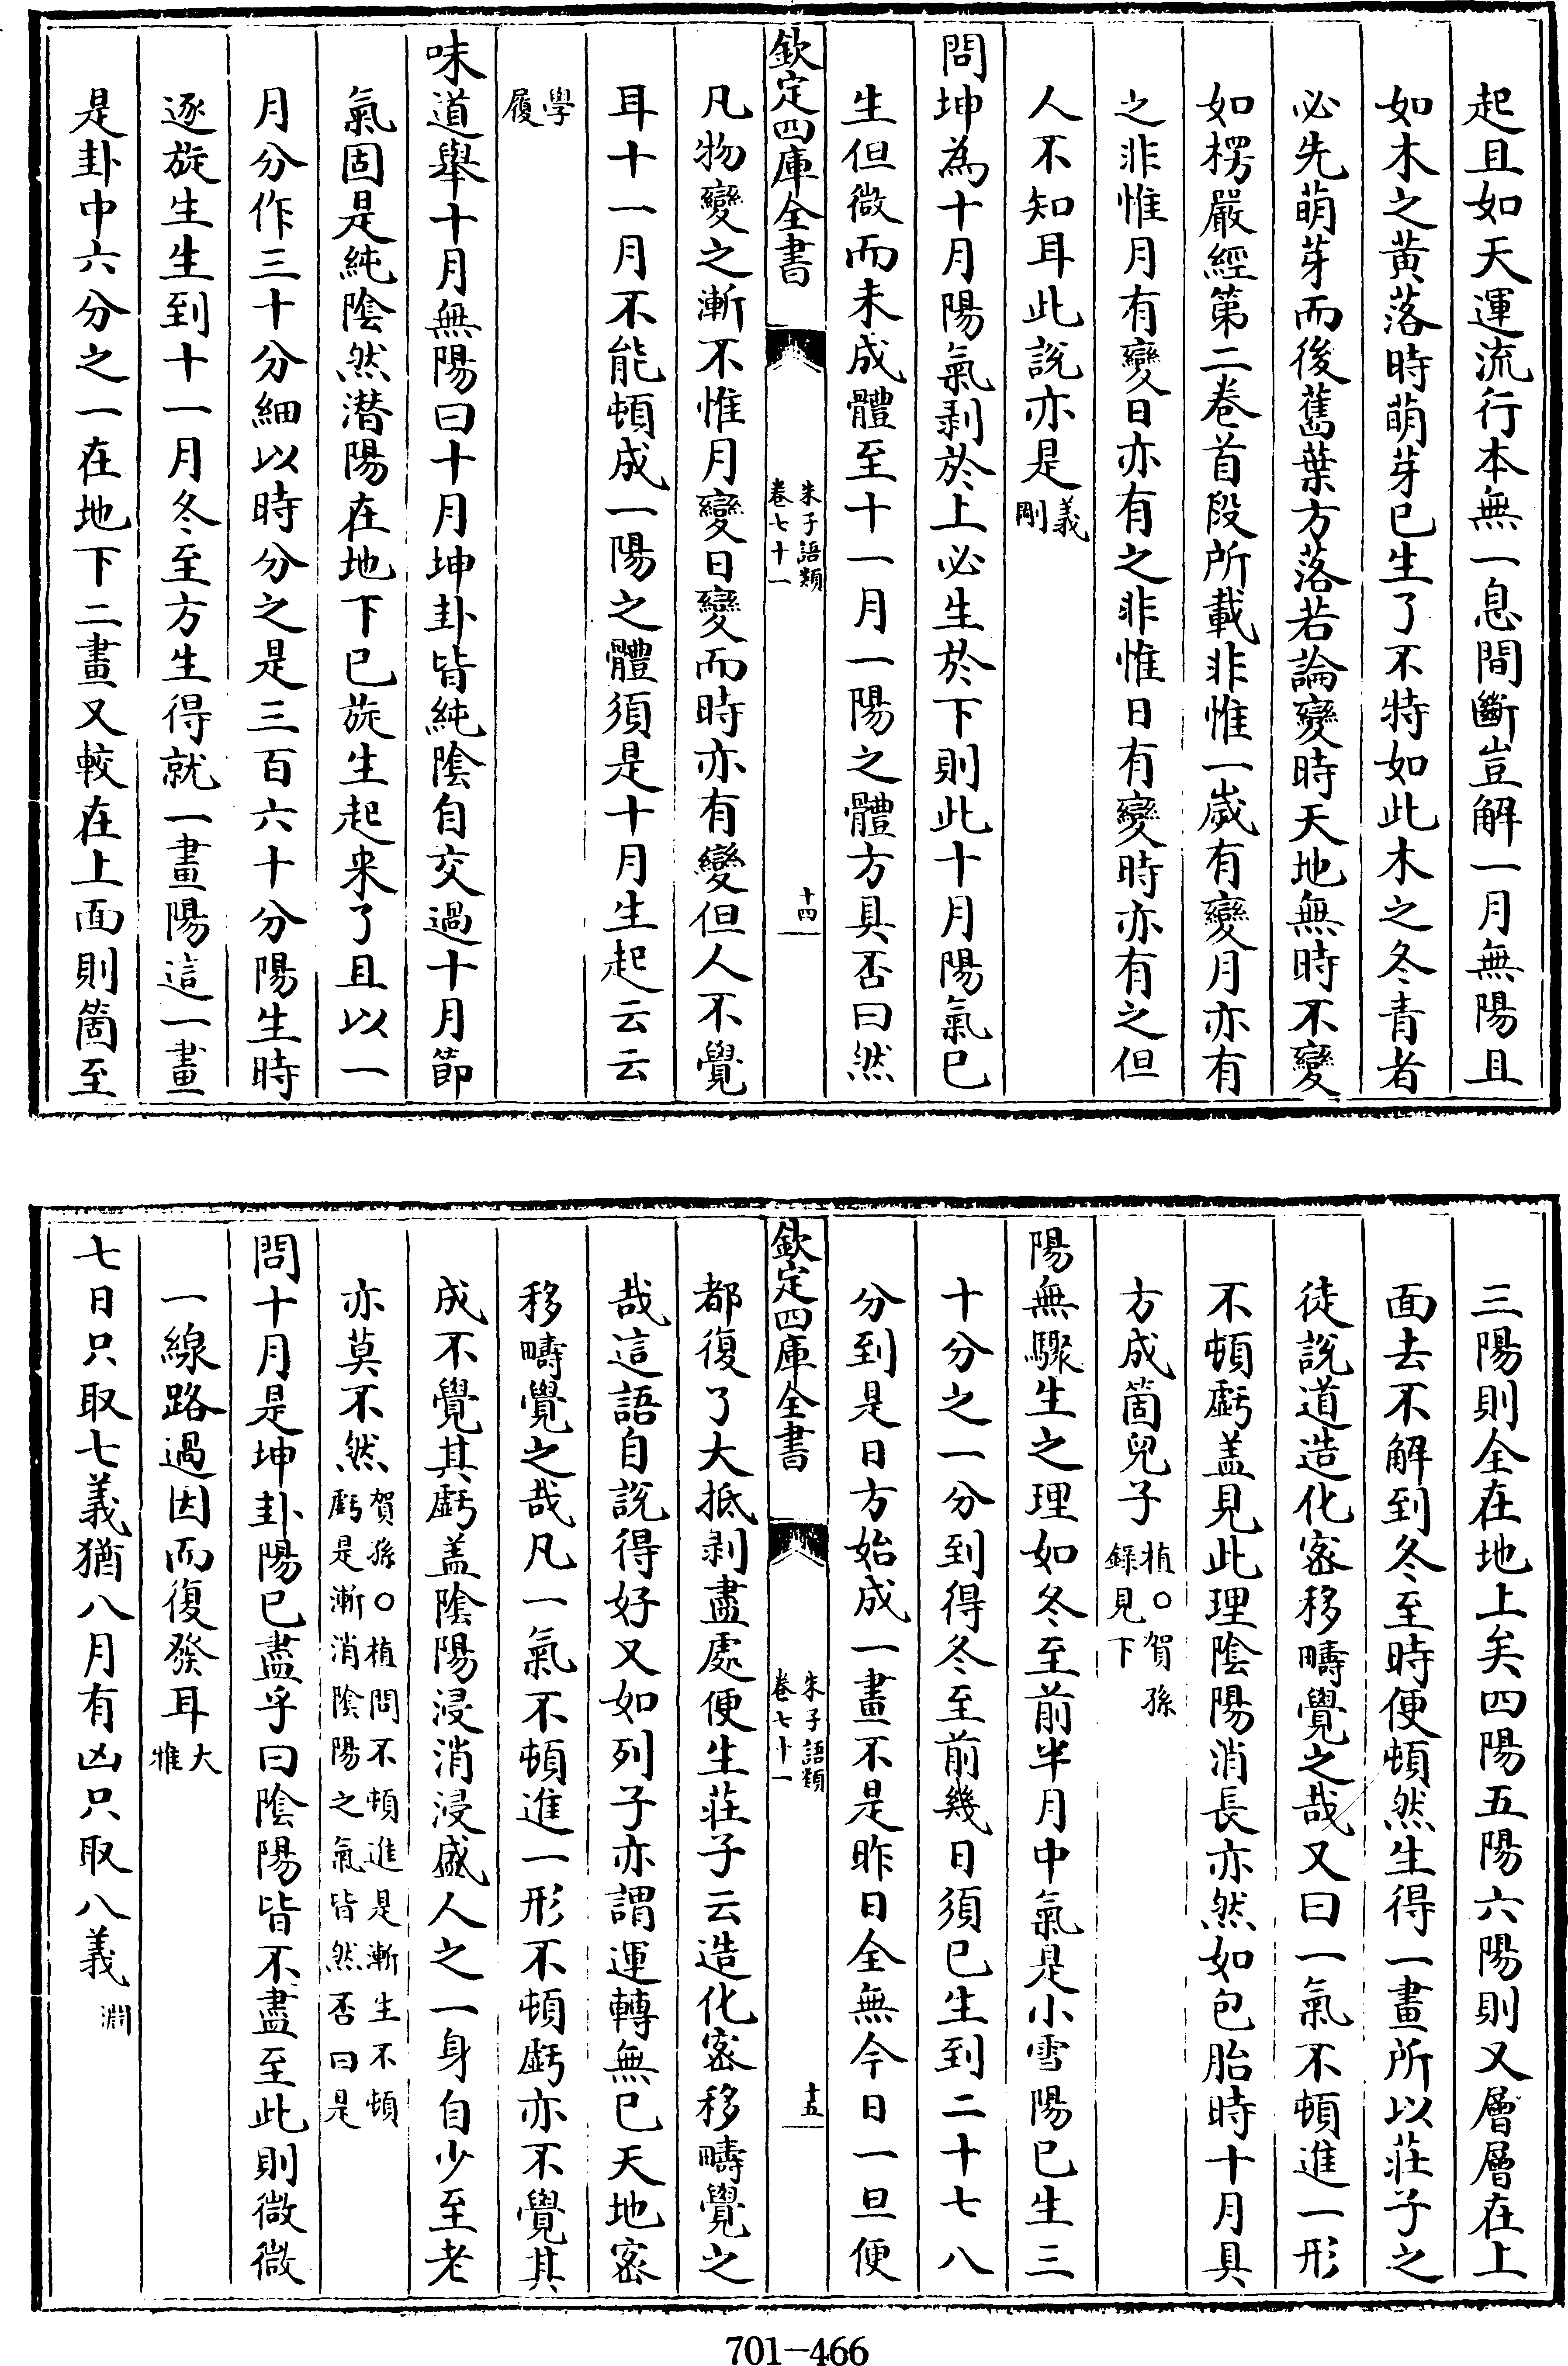 起且如天運流行本無一息間斷豈解一月無陽且
如木之黄落時萌芽已生了不特如此木之冬青者
必先萌芽而後舊葉方落若論變時天地無時不變
如楞嚴經第二卷首段所載非惟一嵗有變月亦有
之非惟月有變日亦有之非惟日有變時亦有之但
人不知耳此説亦是義剛
問坤為十月陽氣剥於上必生於下則此十月陽氣已
生但微而未成體至十一月一陽之體方具否曰然
欽定四庫全書
朱子語類
卷七十一
十四
凡物變之漸不惟月變日變而時亦有變但人不覺
耳十一月不能頓成一陽之體須是十月生起云云
學履
味道舉十月無陽曰十月坤卦皆純隂自交過十月節
氣固是純隂然潜陽在地下已旋生起來了且以一
月分作三十分細以時分之是三百六十分陽生時
逐旋生生到十一月冬至方生得就一畫陽這一畫
是卦中六分之一在地下二畫又較在上面則箇至
三陽則全在地上矣四陽五陽六陽則又層層在上
面去不解到冬至時便頓然生得一畫所以莊子之
徒説道造化宻移疇覺之哉又曰一氣不頓進一形
不頓虧盖見此理隂陽消長亦然如包胎時十月具
方成箇兒子植○賀孫録見下
陽無驟生之理如冬至前半月中氣是小雪陽已生三
十分之一分到得冬至前幾日須已生到二十七八
分到是日方始成一畫不是昨日全無今日一旦便
欽定四庫全書
朱子語類
卷七十一
十五
都復了大抵剥盡處便生莊子云造化宻移疇覺之
哉這語自説得好又如列子亦謂運轉無已天地宻
移疇覺之哉凡一氣不頓進一形不頓虧亦不覺其
成不覺其虧盖隂陽浸消浸盛人之一身自少至老
亦莫不然賀孫○植問不頓進是漸生不頓虧是漸消隂陽之氣皆然否曰是
問十月是坤卦陽已盡乎曰隂陽皆不盡至此則微微
一線路過因而復發耳大雅
七日只取七義猶八月有凶只取八義淵
701-466